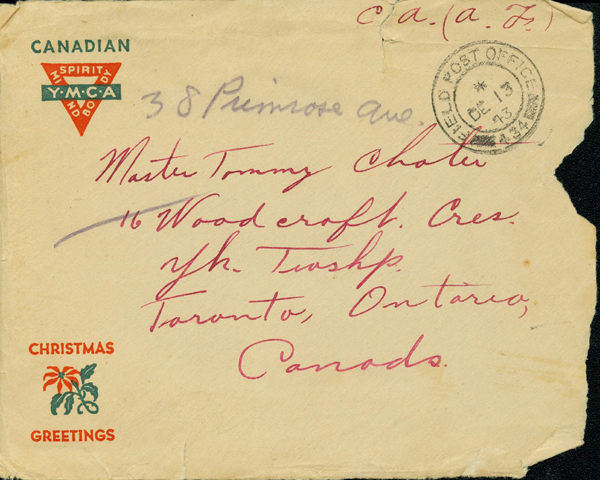 C.A.(A.F.)
CANADIAN
SPIRIT
MIND
BODY
Y·M·C·A
FIELD POST OFFICE
*
DE 13
43
434
38 Primrose Ave.
Master Tommy Chater
16 Woodcroft. Cres.
Yk. Twshp.
Toronto, Ontario,
Canada.
CHRISTMAS
GREETINGS